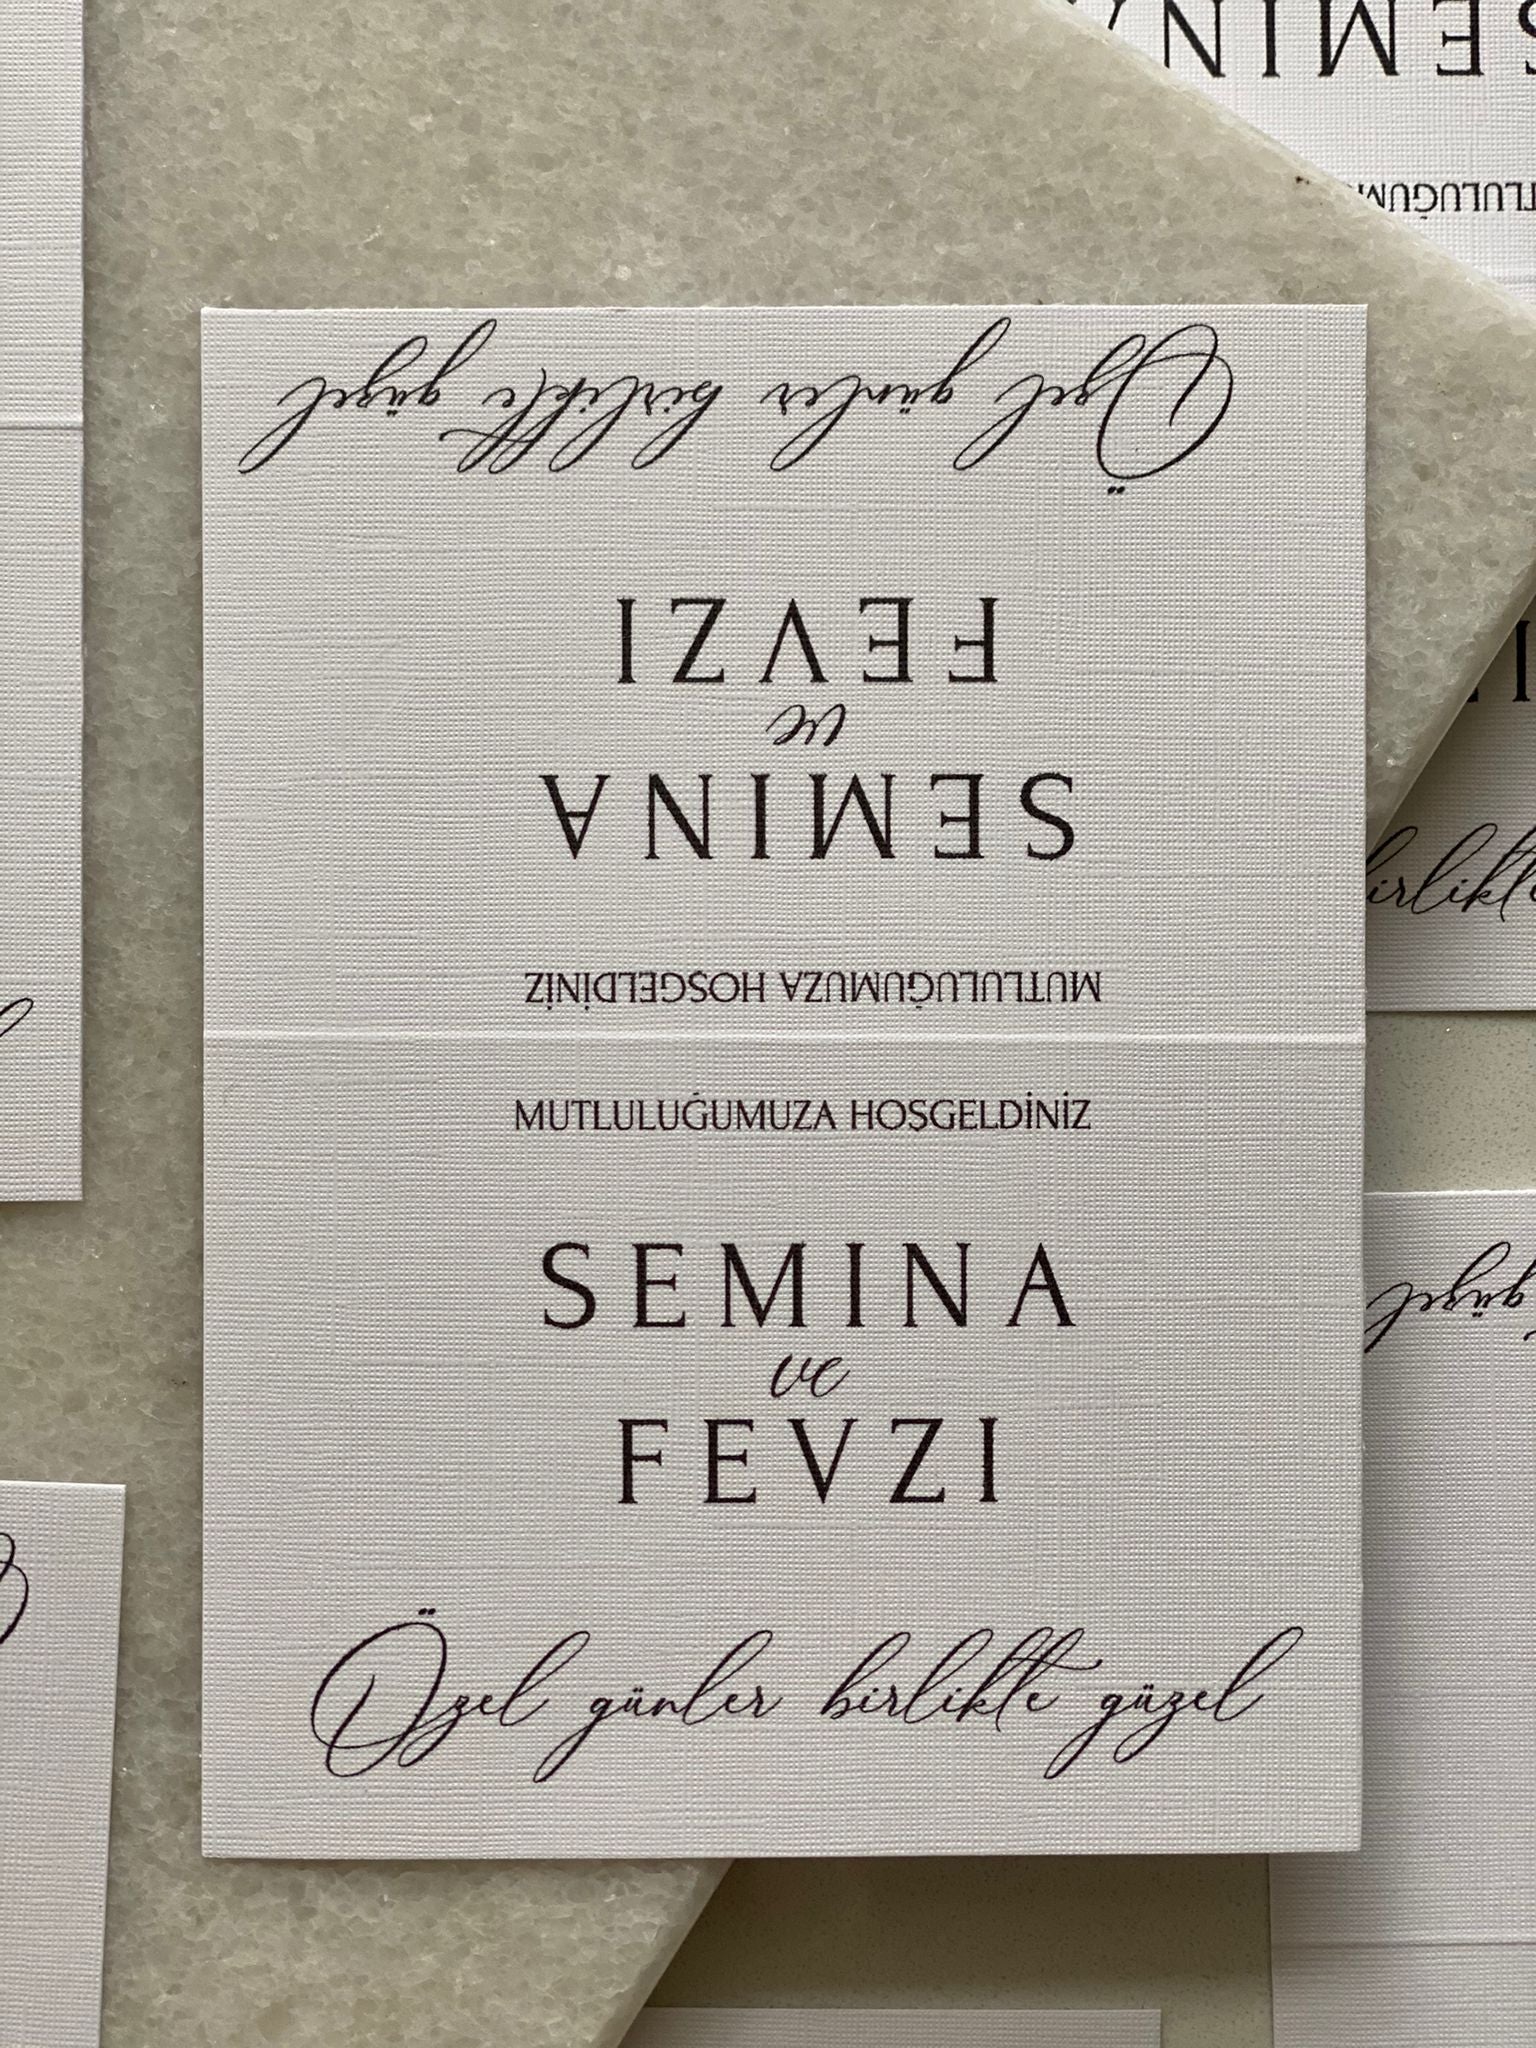 Özel günler birlikte güzel
FEVZI
ve
SEMINA
MUTLULUĞUMUZA HOŞGELDİNİZ
MUTLULUĞUMUZA HOŞGELDİNİZ
SEMINA
ve
FEVZI
Özel günler birlikte güzel
SEMINA
birlikte
güzel